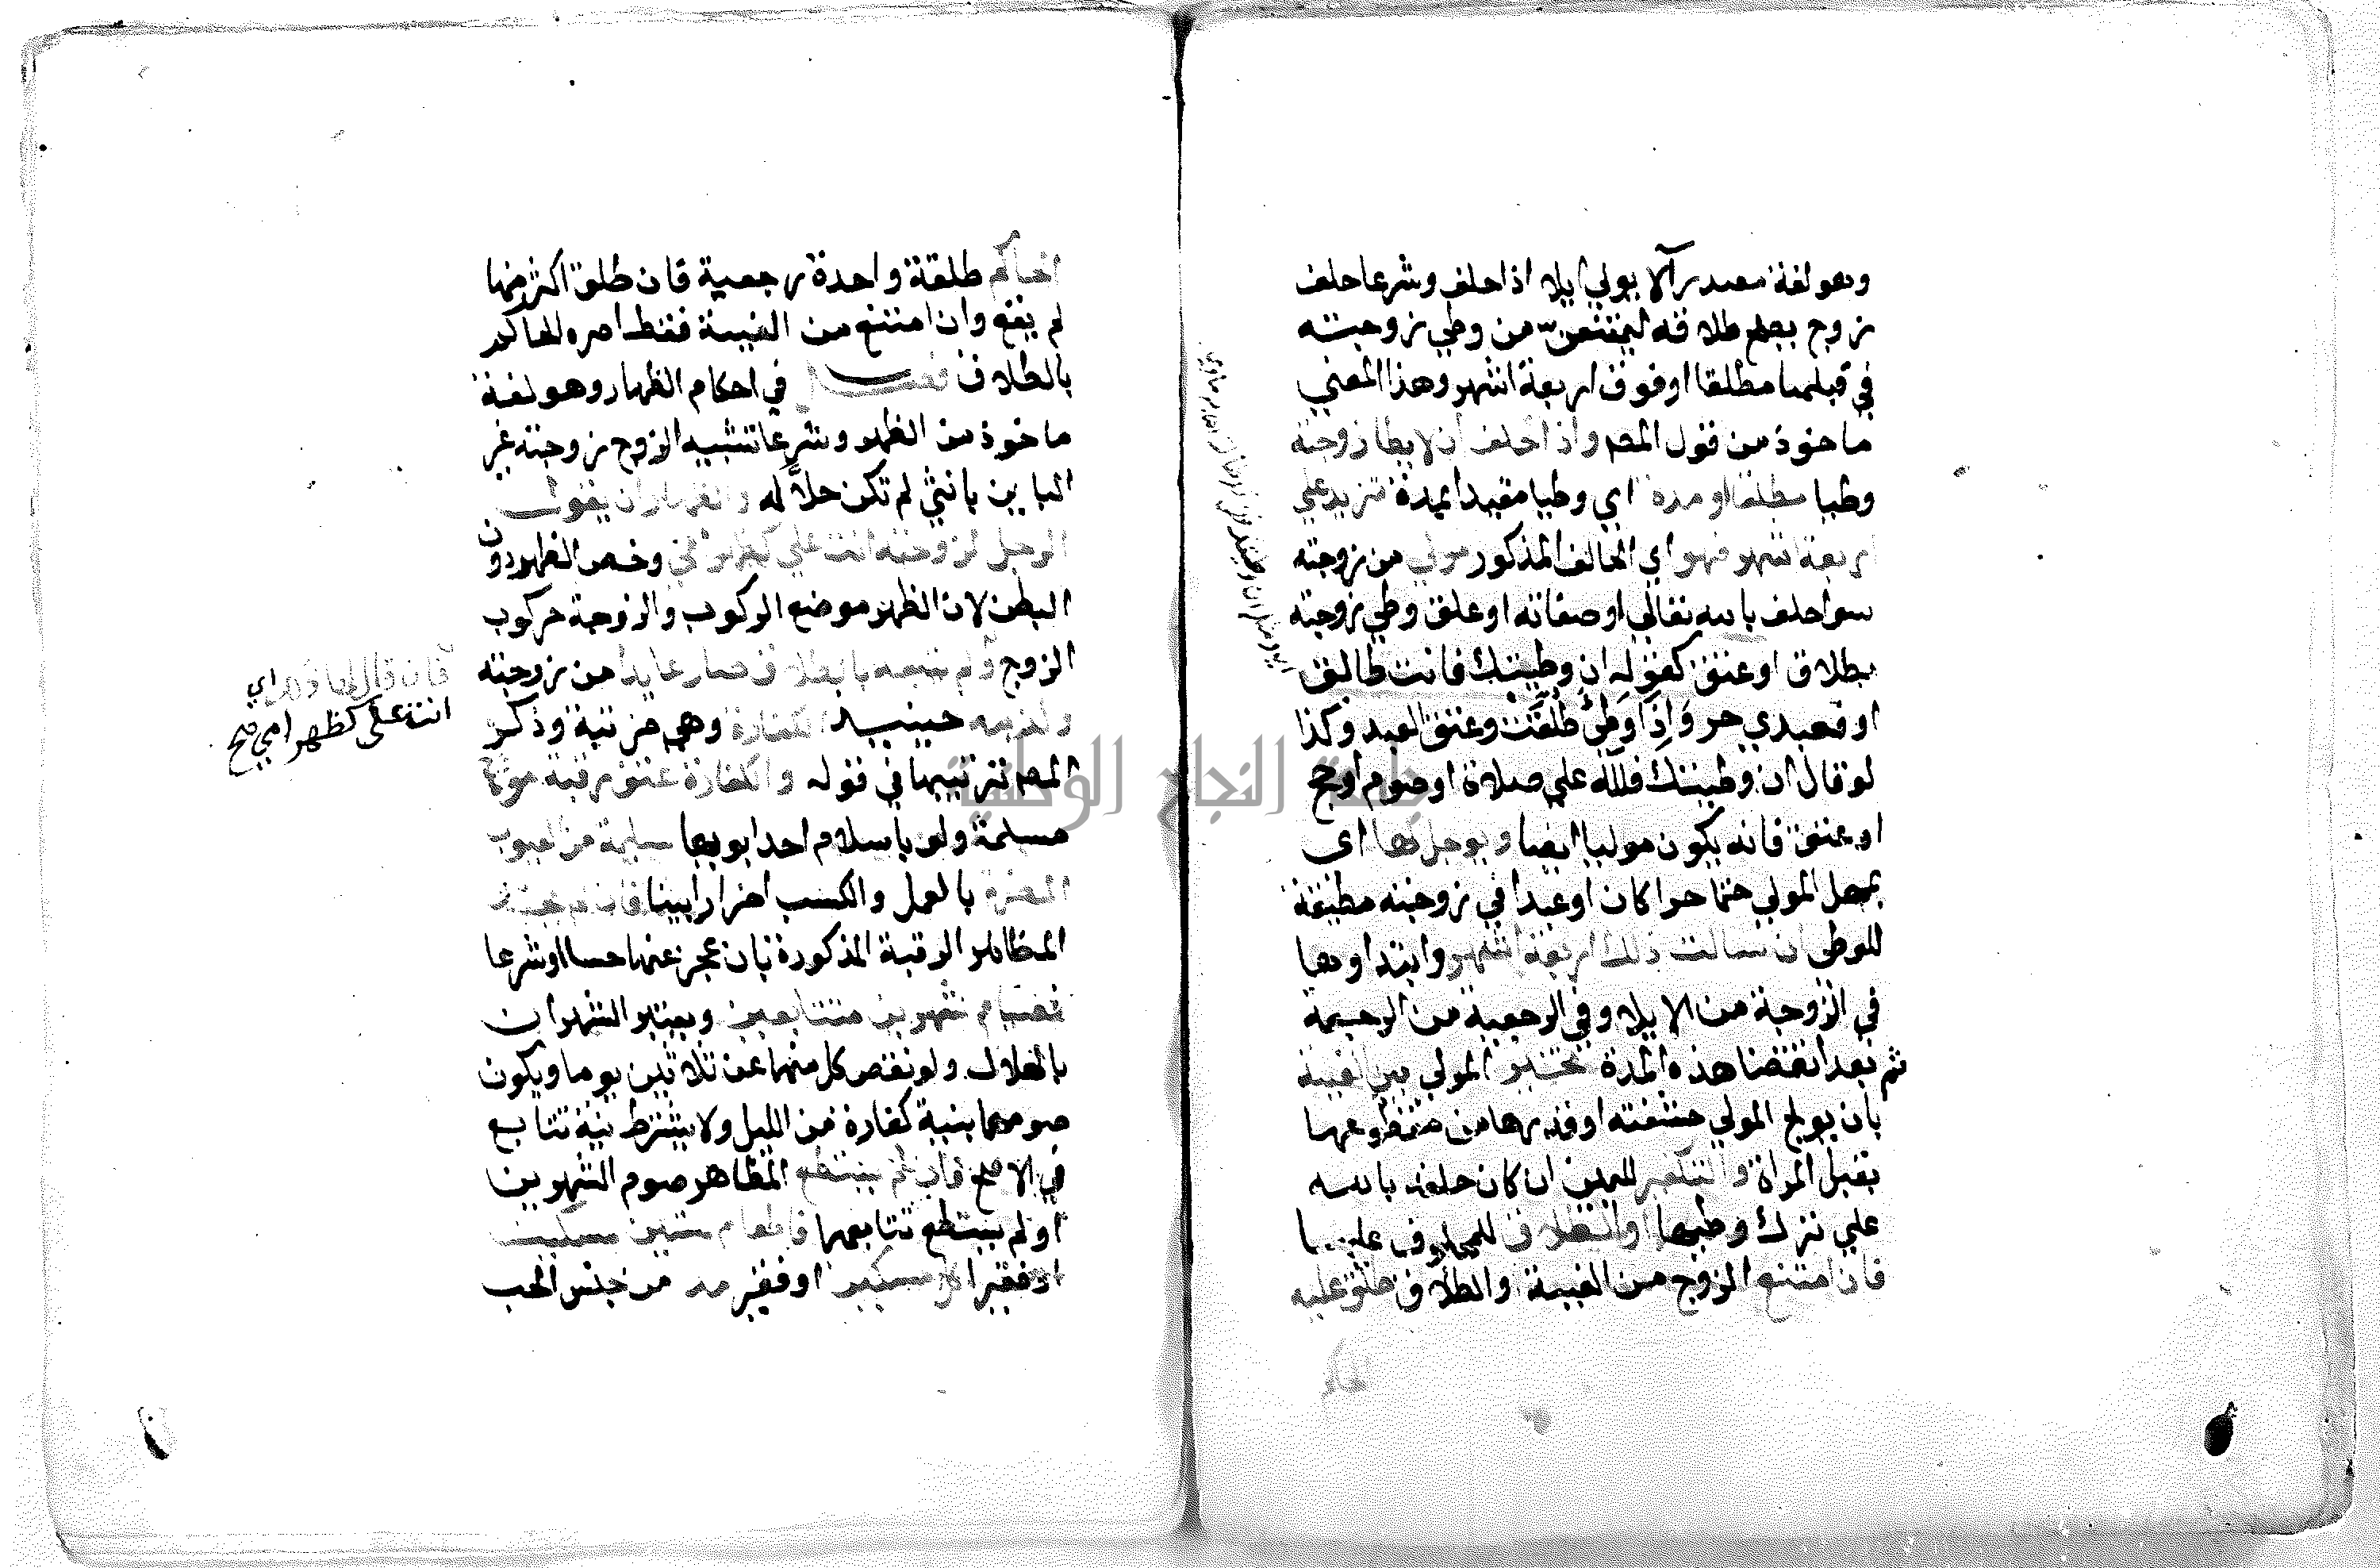 وهو لغة مصدر آلا يولي ايلا اذا حلف وشرعا حلف
زوج يصح طلاقه ليمتنعن من وطي زوجته
في قبلها مطلقا او فوق اربعة اشهر وهذا المعني
ماخوذ من قول المصـ واذا حلف ان لا يطا زوجته
وطيا مطلقا او مدة اي وطيا مقيدا بمدة تزيد علي
اربعة اشهر فهو اي الحالف المذكور مولي من زوجته
سوا حلف بالله تعالي او صفاته او علق وطي زوجته
بطلاق او عتق كقوله ان وطيتك فانت طالق
او فعبدي حر واذا وطي طلقت وعتق العبد وكذا
لو قال ان وطيتك فلله علي صلاة او صوم او حج
او عتق فانه يكون موليا ايضا ويوجل لها اي
يمهل المولي حتما حرا كان او عبدا في زوجته مطيقة
للوطي ان سالت ذلك اربعة اشهر وابتداوها
في الزوجة من الايلا وفي الرجعية من الرجعة
ثم بعد انقضا هذه المدة يخير المولي بين الفيئة
بان يولج المولي حشفته او قدرها من مقطوعها
بقبل المراة والتكفير لليمين ان كان حلفه بالله
علي ترك وطيها او الطلاق للمحلوف عليها
فان امتنع الزوج من الفيئة والطلاق طلق عليه
الحاكم
الحاكم طلقة واحدة رجعية فان طلق اكثر منها
لم يقع وان امتنع من الفيئة فقط امره الحاكم
بالطلاق فصل في احكام الظهار وهو لغة
ماخوذ من الظهر وشرعا تشبيه الزوج زوجته غير
الباين بانثي لم تكن حلا له والظهار ان يقول
الرجل لزوجته انت علي كظهر امي وخص الظهر دون
البطن لان الظهر موضع الركوب والزوجة مركوب
الزوج ولم يتبعه بالطلاق صار عايدا من زوجته
ولزمته حينيذ الكفارة وهي مرتبة وذكر
المصـ ترتيبها في قوله والكفارة عتق رقبة مومنة
مسلمة ولو باسلام احد ابويها سليمة من العيوب
المضرة بالعمل والكسب اضرارا بينا فان لم يجد
المظاهر الرقبة المذكورة بان عجز عنها حسا او شرعا
فصيام شهرين متتابعين ويعتبر الشهران
بالهلال ولو نقص كل منهما عن ثلاثين يوما ويكون
صومهما بنية كفارة من الليل ولا يشترط نية تتابع
في الاصح فان لم يستطع المظاهر صوم الشهرين
او لم يستطع تتابعهما فاطعام ستين مسكينا
او فقيرا كل مسكين او فقير مد من جنس الحب
فان قال لها ذلك اي
انت على كظهر امي صح